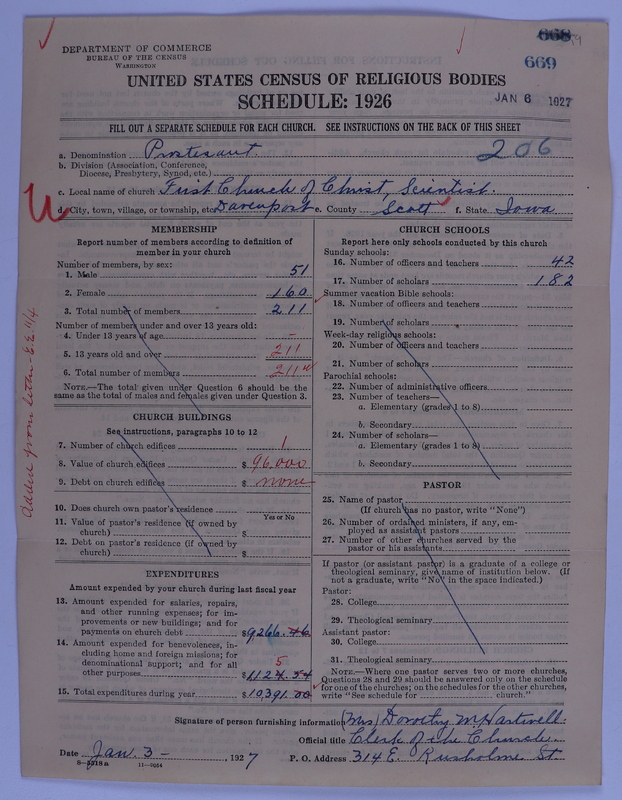 668
669
DEPARTMENT OF COMMERCE
BUREAU OF THE CENSUS
WASHINGTON
UNITED STATES CENSUS OF RELIGIOUS BODIES
SCHEDULE: 1926
JAN 6 1927
FILL OUT A SEPARATE SCHEDULE FOR EACH CHURCH. SEE INSTRUCTIONS ON THE BACK OF THIS SHEET
a. Denomination Protesant 206
b. Division (Association, Conference, Diocese, Presbytery, Synod, etc.)
c. Local name of church First Church of Christ, Scientist.
d. City, town, village, or township, etc. Davenport e. County Scott f. State Iowa
Added from letter
MEMBERSHIP
Report number of members according to definition of
member in your church
Number of members, by sex:
1. Male 51
2. Female 160
3. Total number of members 211
Number of members under and over 13 years old:
4. Under 13 years of age –
5. 13 years old and over 211
6. Total number of members 211
NOTE.—The total given under Question 6 should be the
same as the total of males and females given under Question 3.
CHURCH BUILDINGS
See instructions, paragraphs 10 to 12
7. Number of church edifices 1
8. Value of church edifices $ 96,000
9. Debt on church edifices $ none
10. Does church own pastor's residence
Yes or No
11. Value of pastor's residence (if owned by
church) $
12. Debt on pastor's residence (if owned by
church) $
EXPENDITURES
Amount expended by your church during last fiscal year
13. Amount expended for salaries, repairs,
and other running expenses; for im-
provements or new buildings; and for
payments on church debt $9266.46
14. Amount expended for benevolences, in-
cluding home and foreign missions; for
denominational support; and for all
other purposes $1124.54
5
15. Total expenditures during year $10,391.00
CHURCH SCHOOLS
Report here only schools conducted by this church
Sunday schools:
16. Number of officers and teachers 42
17. Number of scholars 182
Summer vacation Bible schools:
18. Number of officers and teachers
19. Number of scholars
Week-day religious schools:
20. Number of officers and teachers
21. Number of scholars
Parochial schools:
22. Number of administrative officers
23. Number of teachers—
a. Elementary (grades 1 to 8)
b. Secondary
24. Number of scholars—
a. Elementary (grades 1 to 8)
b. Secondary
PASTOR
25. Name of pastor
(If church has no pastor, write "None")
26. Number of ordained ministers, if any, em-
ployed as assistant pastors
27. Number of other churches served by the
pastor or his assistants
If pastor (or assistant pastor) is a graduate of a college or
theological seminary, give name of institution below. (If
not a graduate, write "No" in the space indicated.)
Pastor:
28. College
29. Theological seminary
Assistant pastor:
30. College
31. Theological seminary
NOTE.—Where one pastor serves two or more churches,
Questions 28 and 29 should be answered only on the schedule
for one of the churches; on the schedules for the other churches,
write "See schedule for church."
Signature of person furnishing information (Mrs) Dorothy M. Hartwell.
Official title Clerk of the Church.
Date Jan. 3 – , 1927 P. O. Address 314 E. Rusholme St.
8—5318a 11—9054